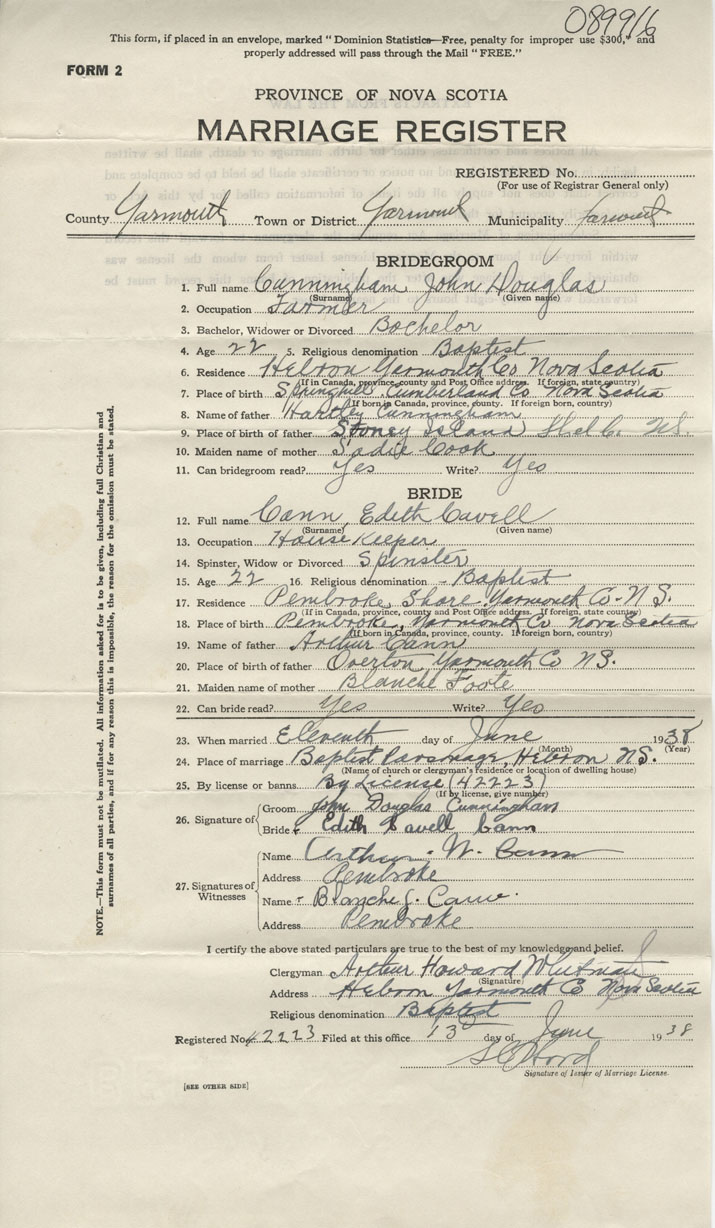 089916
This form, if placed in an envelope, marked " Dominion Statistics—Free, penalty for improper use $300," and
properly addressed will pass through the Mail " FREE."
FORM 2
PROVINCE OF NOVA SCOTIA
MARRIAGE REGISTER
REGISTERED No.
(For use of Registrar General only)
County Yarmouth Town or District Yarmouth Municipality Yarmouth
BRIDEGROOM
1. Full name Cunningham John Douglas
(Surname) (Given name)
2. Occupation Farmer
3. Bachelor, Widower or Divorced Bachelor
4. Age 22 5. Religious denomination Baptist
6. Residence Hebron Yarmouth Co Nova Scotia
(If in Canada, province, county and Post Office address. If foreign, state country)
7. Place of birth Springhill Cumberland Co Nova Scotia
(If born in Canada, province, county. If foreign born, country)
8. Name of father Hartley Cunningham
9. Place of birth of father Stoney Island Shel Co. N.S.
10. Maiden name of mother Sadie Cook
11. Can bridegroom read? Yes Write? Yes
BRIDE
12. Full name Cann, Edith Cavell
(Surname) (Given name)
13. Occupation House Keeper
14. Spinster, Widow or Divorced Spinster
15. Age 22 16. Religious denomination - Baptist
17. Residence Pembroke Shore Yarmouth Co - N.S.
(If in Canada, province, county and Post Office address. If foreign, state country)
18. Place of birth Pembroke, Yarmouth Co Nova Scotia
(If born in Canada, province, county. If foreign born, country)
19. Name of father Arthur Cann
20. Place of birth of father Overton Yarmouth Co N.S.
21. Maiden name of mother Blanche Foote
22. Can bride read? Yes Write? Yes
23. When married Eleventh day of June 1938
(Month) (Year)
24. Place of marriage Baptist Parsonage, Hebron N.S.
(Name of church or clergyman's residence or location of dwelling house)
25. By license or banns By License (42223)
(If by license, give number)
26. Signature of
Groom John Douglas Cunningham
Bride Edith Cavell Cann
27. Signatures of Witnesses
Name Arthur W. Cann
Address Pembroke
Name Blanche J. Cann
Address Pembroke
I certify the above stated particulars are true to the best of my knowledge and belief.
Clergyman Arthur Howard Whitman
(Signature)
Address Hebron Yarmouth Co Nova Scotia
Religious denomination Baptist
Registered No. 42223 Filed at this office 13 day of June 1938
Signature of Issuer of Marriage License.
[SEE OTHER SIDE]
NOTE.—This form must not be mutilated. All information asked for is to be given, including full Christian and
surnames of all parties, and if for any reason this is impossible, the reason for the emission must be stated.